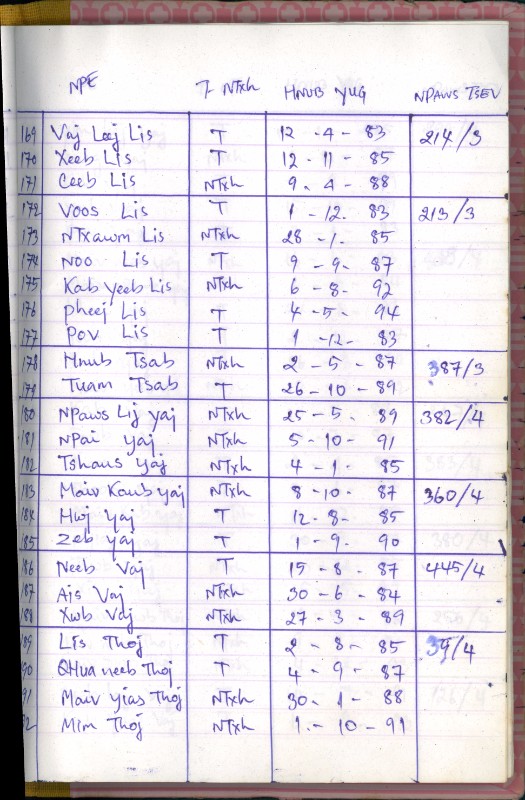 NPE T NTxh HNUB YUG NPAWS TSEV
169 Vaj Looj Lis T 12 - 4 - 83 214/3
170 Xeeb Lis T 12 - 11 - 85
171 Ceeb Lis NTxh 9 - 4 - 88
172 Voos Lis T 1 - 12 - 83 213/3
173 NTxawm Lis NTxh 28 - 1 - 85
174 Noo Lis T 9 - 9 - 87
175 Kab yeeb Lis NTxh 6 - 8 - 92
176 pheej Lis T 4 - 5 - 94
177 pov Lis T 1 - 12 - 83
178 Hnub Tsab NTxh 2 - 5 - 87 387/3
179 Tuam Tsab T 26 - 10 - 89
180 NPaws Lij yaj NTxh 25 - 5 - 89 382/4
181 NPai yaj NTxh 5 - 10 - 91
182 Tshaus yaj NTxh 4 - 1 - 85
183 Maiv Kaub yaj NTxh 8 - 10 - 87 360/4
184 Huj yaj T 12 - 8 - 85
185 Zeb yaj T 1 - 9 - 90
186 Neeb Vaj T 15 - 8 - 87 445/4
187 Ais Vaj NTxh 30 - 6 - 84
188 Xwb Vaj NTxh 27 - 3 - 89
189 Lis Thoj T 2 - 8 - 85 39/4
90 QHua neeb Thoj T 4 - 9 - 87
91 Maiv yias Thoj NTxh 30 - 1 - 88
92 Mim Thoj NTxh 1 - 10 - 91